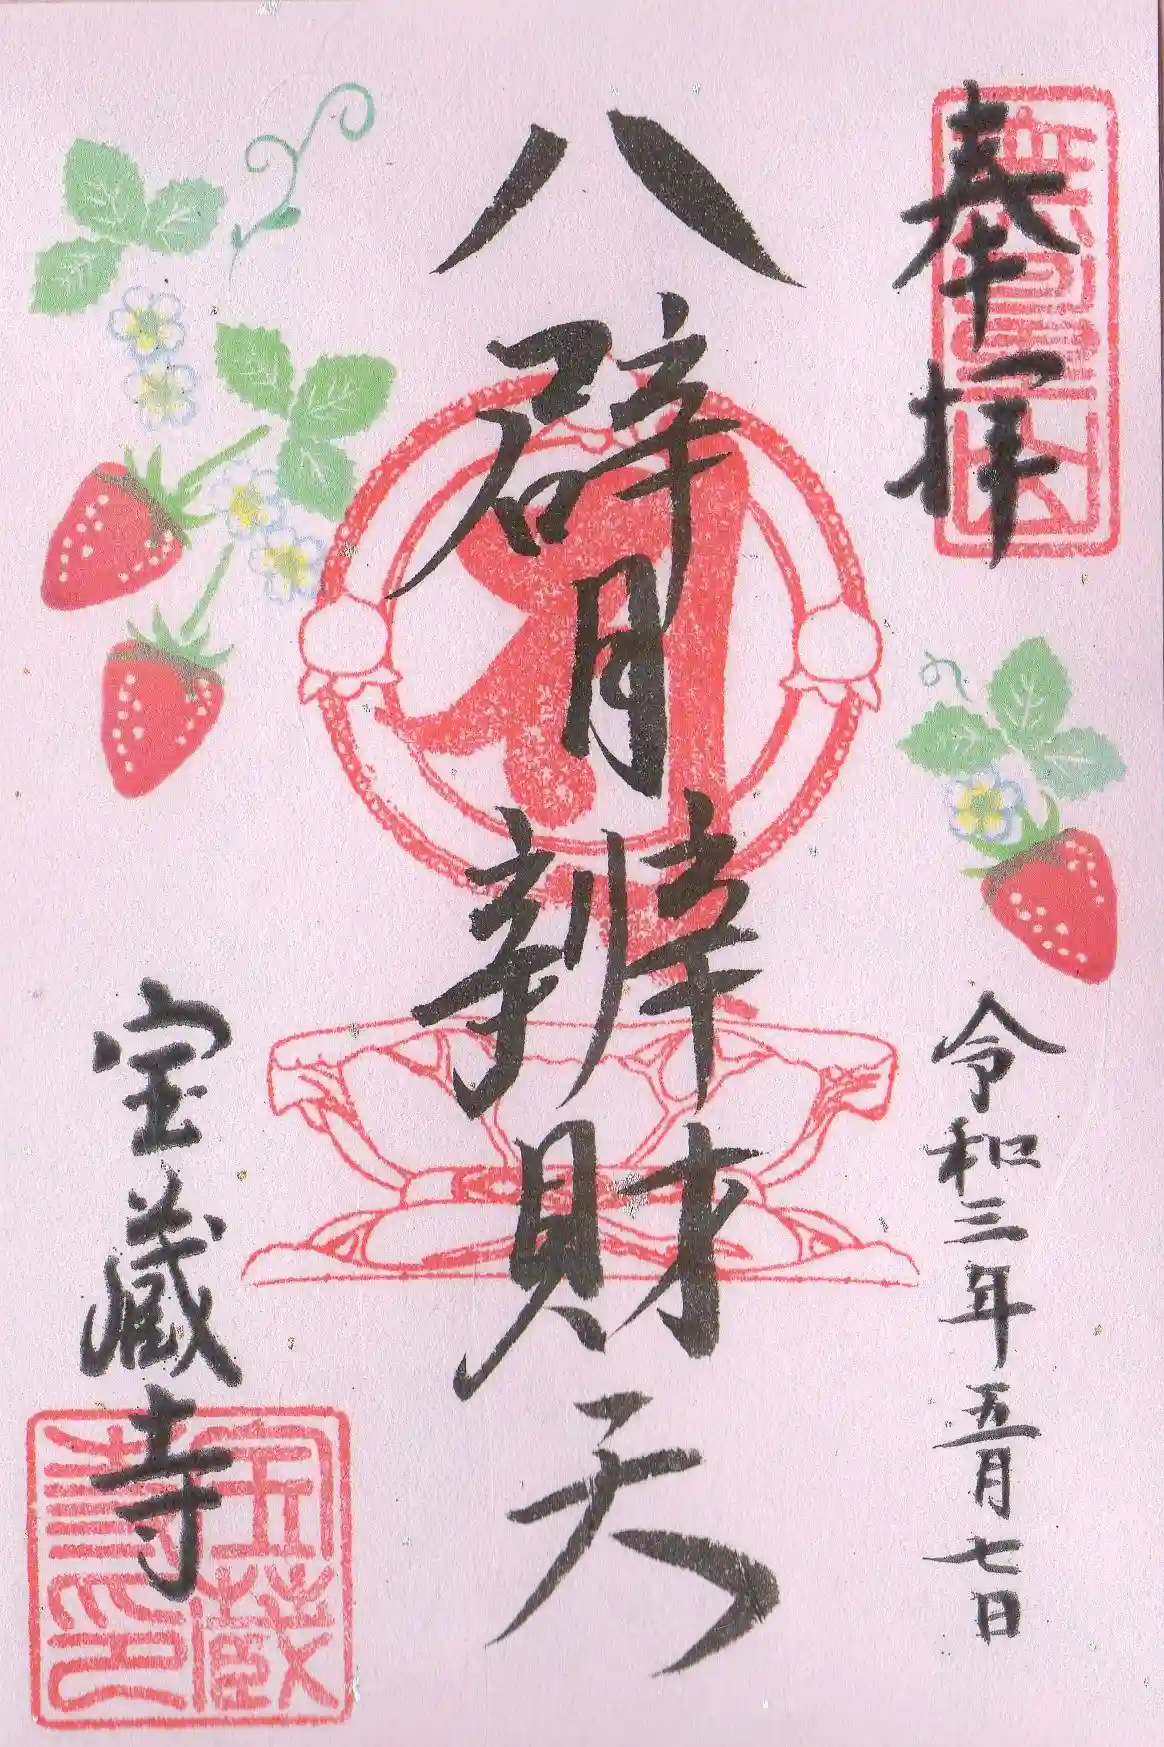 奉拝
令和三年五月七日
八臂辨財天
宝蔵寺
宝蔵寺印